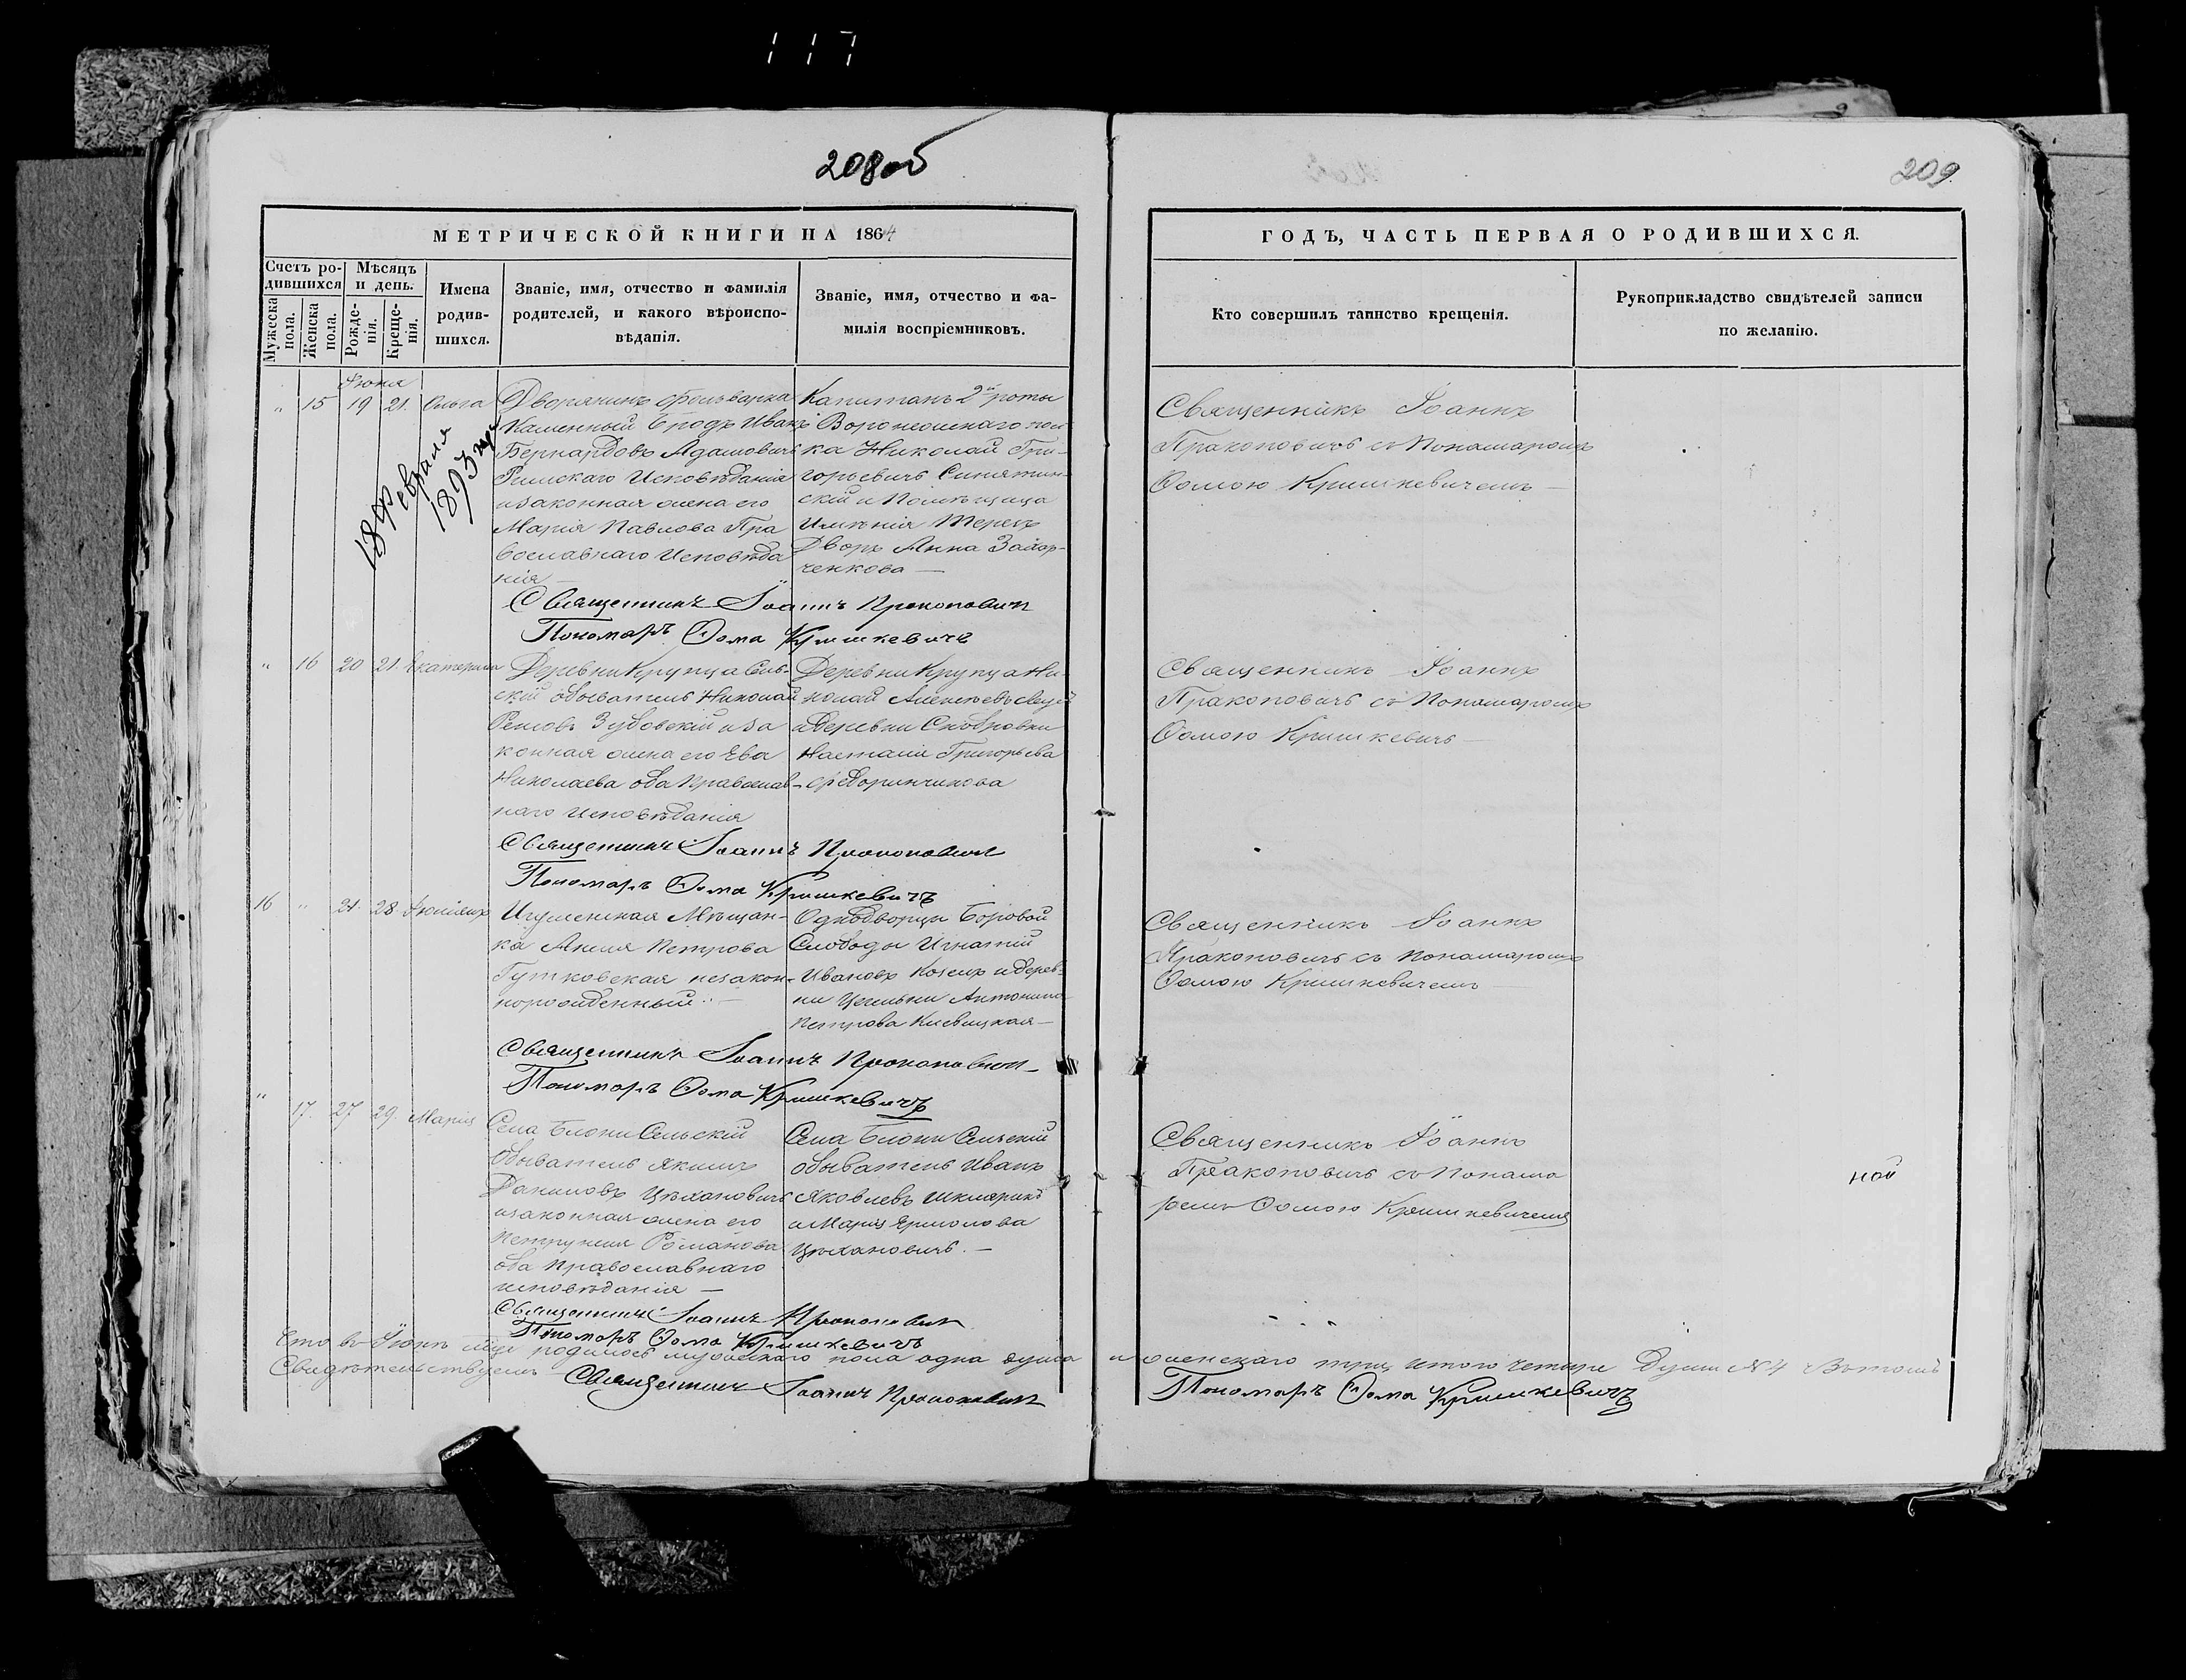 117
208об
209.
МЕТРИЧЕСКОЙ КНИГИ НА 1864
ГОДЪ, ЧАСТЬ ПЕРВАЯ О РОДИВШИХСЯ.
Счетъ ро-
дившихся
Мужеска
пола.
Женска
пола.
Мѣсяцъ
и день.
Рожде-
нія.
Креще-
нія.
Имена
родив-
шихся.
Званіе, имя, отчество и фамилія
родителей, и какого вѣроиспо-
вѣданія.
Званіе, имя, отчество и фа-
милія воспріемниковъ.
Кто совершилъ таинство крещенія.
Рукоприкладство свидѣтелей записи
по желанію.
Іюня
" 15 19 21. Ольга
18 Февраля
1893 году
Дворянинъ фольварка
Каменный Бродъ Иванъ
Бернардовъ Адамовичъ
Римскаго Исповѣданія
изаконная жена его
Марія Павлова Пра
вославнаго Исповѣда
нія —
Капитанъ 2й роты
Воронежскаго пол
ка Николай Гри-
горьевичъ
скій и Помѣщица
Имѣнія
Дворъ Анна Захор-
ченкова —
Священникъ Іоаннъ
Пракоповичъ съ Понамаромъ
Ѳомою Кришкевичемъ —
Священникъ Іоаннъ Прокопович
Пономарь Ѳома Кришкевичъ
" 16 20 21. Екатерина
Деревни Крупца Сель-
скій обыватель Николай
Зубовскій иза
конная жена его Ева
Николаева оба Православ-
наго Исповѣданія
Деревни Крупца Ни-
колай Алексѣевъ
иДеревни
Григорьева
Священникъ Іоаннъ
Пракоповичъ съ Понамаромъ
Ѳомою Кришкевичъ —
Священникъ Іоаннъ Прокопович
Пономарь Ѳома Кришкевичъ
16 " 21. 28
Игуменская Мѣщан-
ка Петрова
Гутковская незакон-
норожденный —
Однодворцы Боровой
Слободы Игнатій
Ивановъ иДерев-
ни Антонина
Петрова —
Священникъ Іоаннъ
Пракоповичъ съ Понамаромъ
Ѳомою Кришкевичемъ —
Священникъ Іоаннъ Прокопович
Пономарь Ѳома Кришкевичъ
" 17. 27 29. Марія
Села Блони Сельскій
Обыватель Якимъ
Даниловъ Цѣхановичъ
изаконная жена его
Романова
оба Православнаго
исповѣданія —
Села Блони Сельскій
обыватель Иванъ
Яковлевъ
иМарія Ермолова
Цѣхановичъ. —
Священникъ Іоаннъ
Пракоповичъ съ Понама
ремъ Ѳомою Кришкевичемъ
ной
Священникъ Іоаннъ Прокопович
Пономарь Ѳома Кришкевичъ
Что въ Іюнѣ мцѣ родилось мужескаго пола одна душа и женскаго три итого четыре души №4 Вътомъ
Свидѣтельствуемъ Священникъ Іоаннъ Прокопович Пономарь Ѳома Кришкевичъ